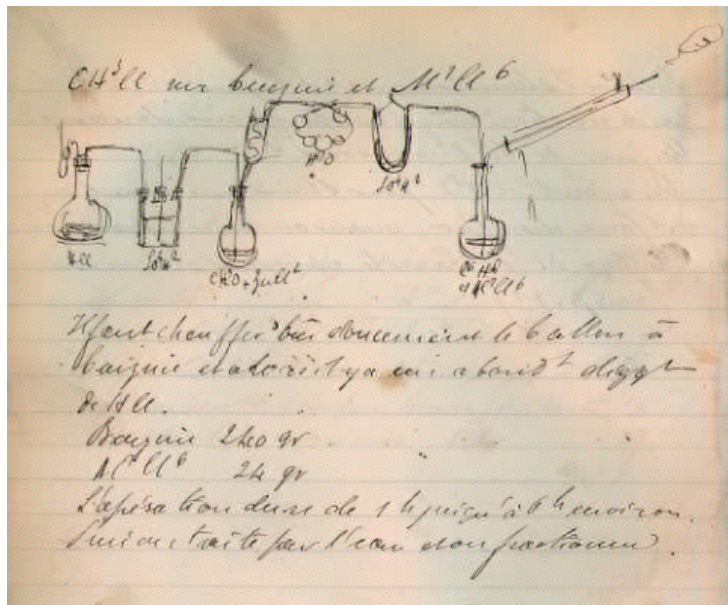 CH³Cl sur benzine et Al²Cl⁶
H²O
So⁴H²
HCl
So⁴H²
CH⁴O + ZnCl²
C⁶H⁶
et Al²Cl⁶
Il faut chauffer très doucement le ballon à
benzine et alors il y a un abond^t dégag^t
de HCl.
Benzine 240 gr
Al²Cl⁶ 24 gr
L'opération dure de 1 h jusqu'à 6 h environ.
Puis on traite par l'eau et on fractionne.